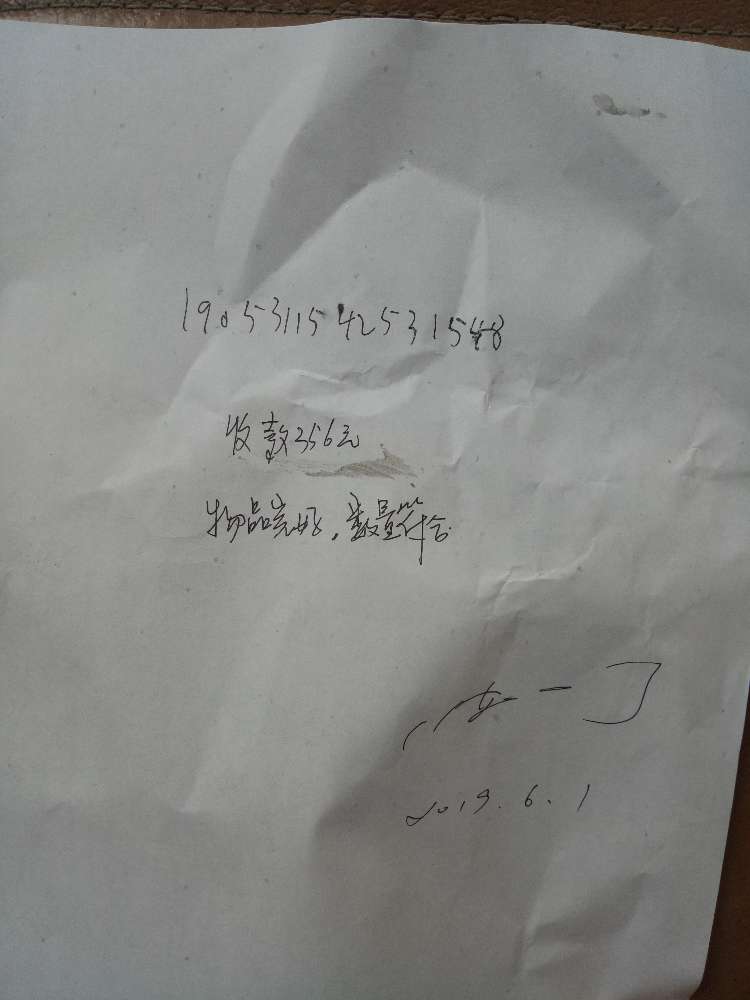 1905311542531548
收款356元
物品完好，数量符合
2019.6.1